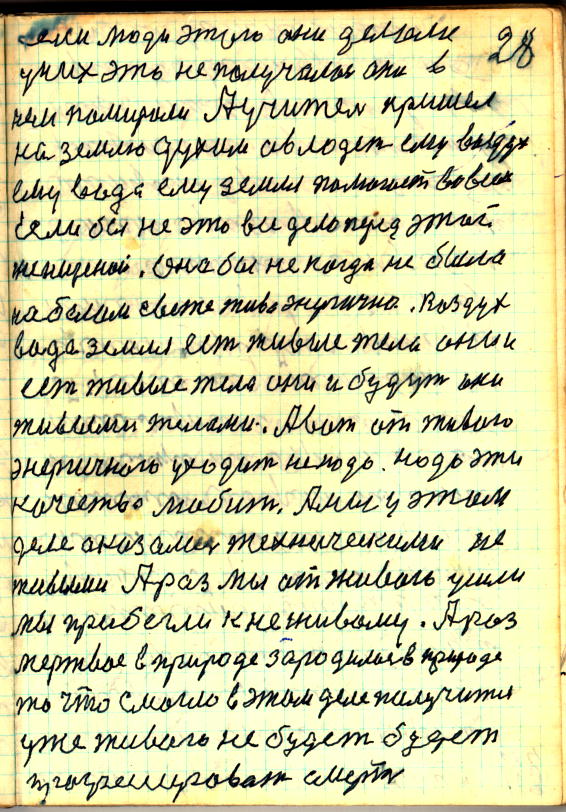 28
если люди этого они делали
уних это не получалос они в
нем помирали Аучител пришел
на землю духим овлодет ему воздух
ему вода ему земля помогает вовсем
Если бы не это все дело перед этой
женщеной. Она бы не когда не была
на белом свете живо энергично. Воздух
вода земля ест живые тела они и
ест живые тела они и будут они
живыми телами. Авот от живого
энергичного уходит ненадо. Надо эти
качество любит. Амы у этом
деле оказалис техническими не
живыми Араз мы отживого ушли
мы прибегли кнеживому. Араз
мертвое в природе зародилос в природе
то что смогло в этом деле получится
уже живого не будет будет
прогресироват смерть